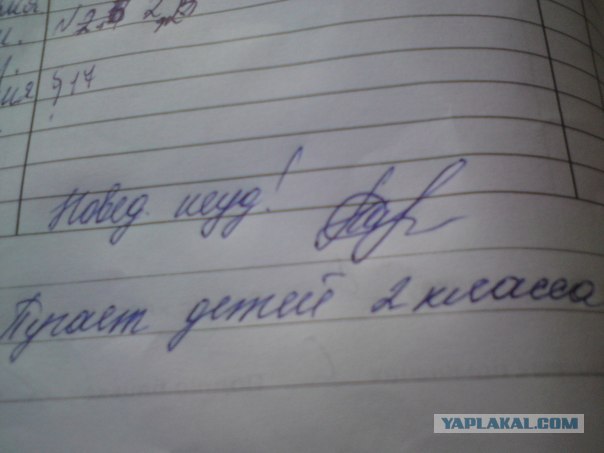 N2,5 2,
§17
Повед. неуд!
Пугает детей 2 класса
YAPLAKAL.COM